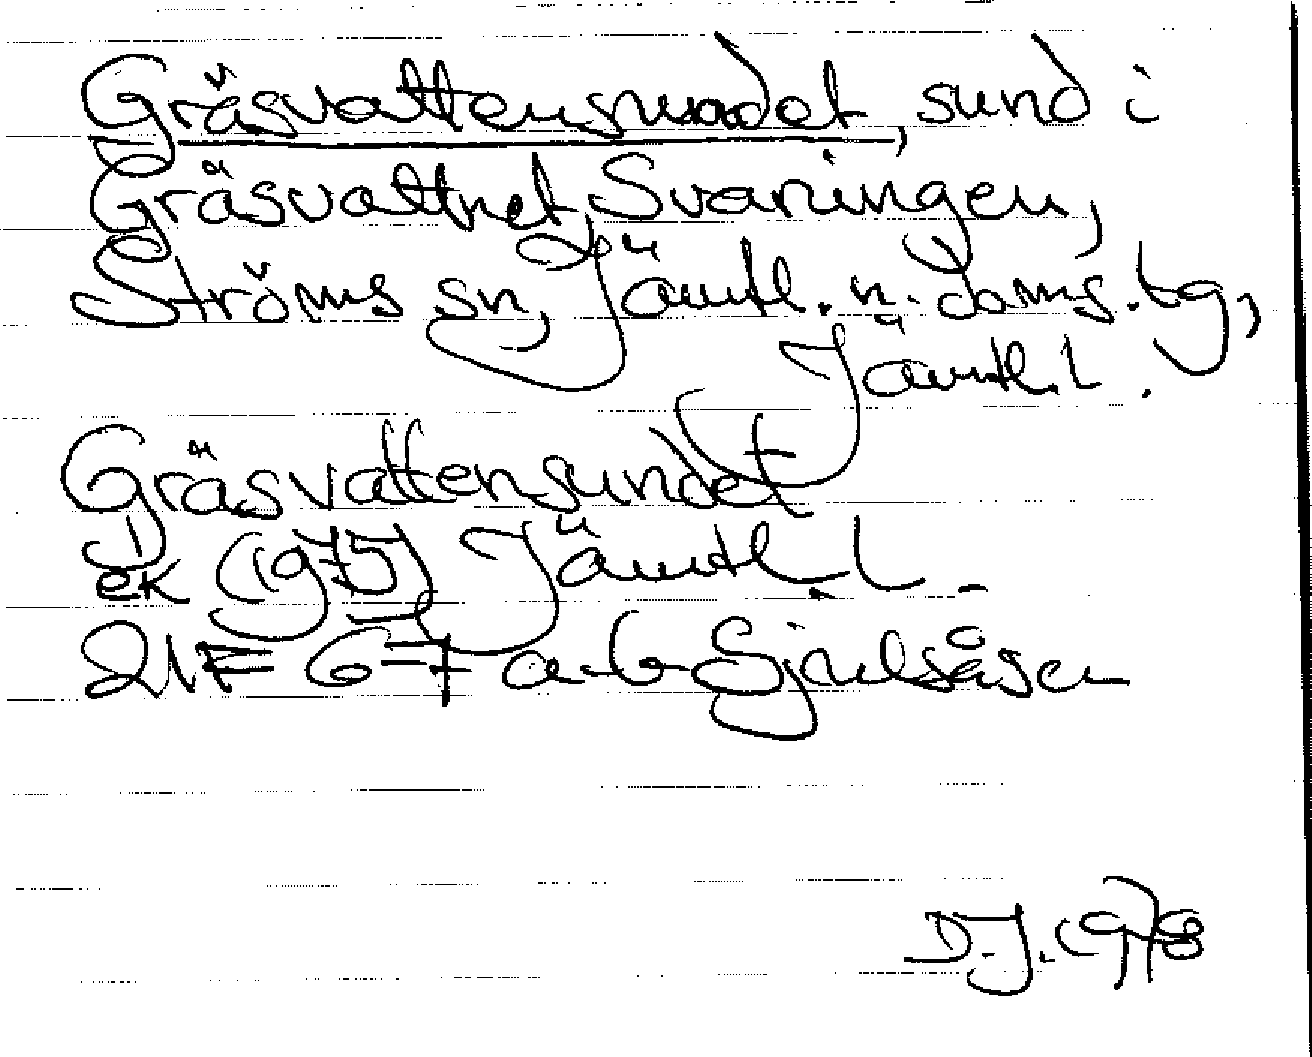 Gräsvattensundet, sund i
Gräsvattnet, Svaningen,
Ströms sn, Jämtl. n. doms. tg,
Jämtl. l.
Gräsvattensundet
ek (1975) Jämtl. l.
21F 6-7 a-b Sjulsåsen
D.J. 1978